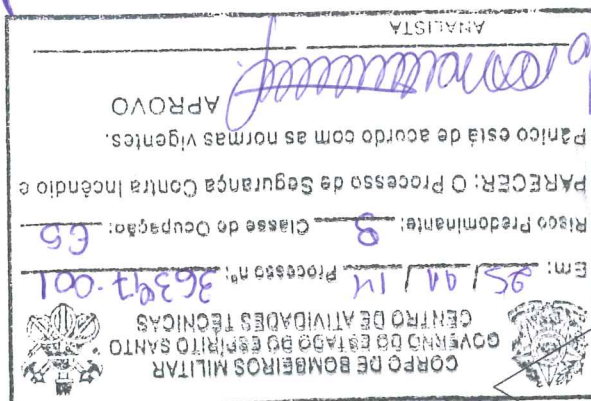 CORPO DE BOMBEIROS MILITAR
GOVERNO DO ESTADO DO ESPÍRITO SANTO
CENTRO DE ATIVIDADES TÉCNICAS
Em: 25/11/14 Processo nº: 36397-001
Risco Predominante: Classe de Ocupação:
PARECER: O Processo de Segurança Contra Incêndio e
Pânico está de acordo com as normas vigentes.
APROVO
ANALISTA